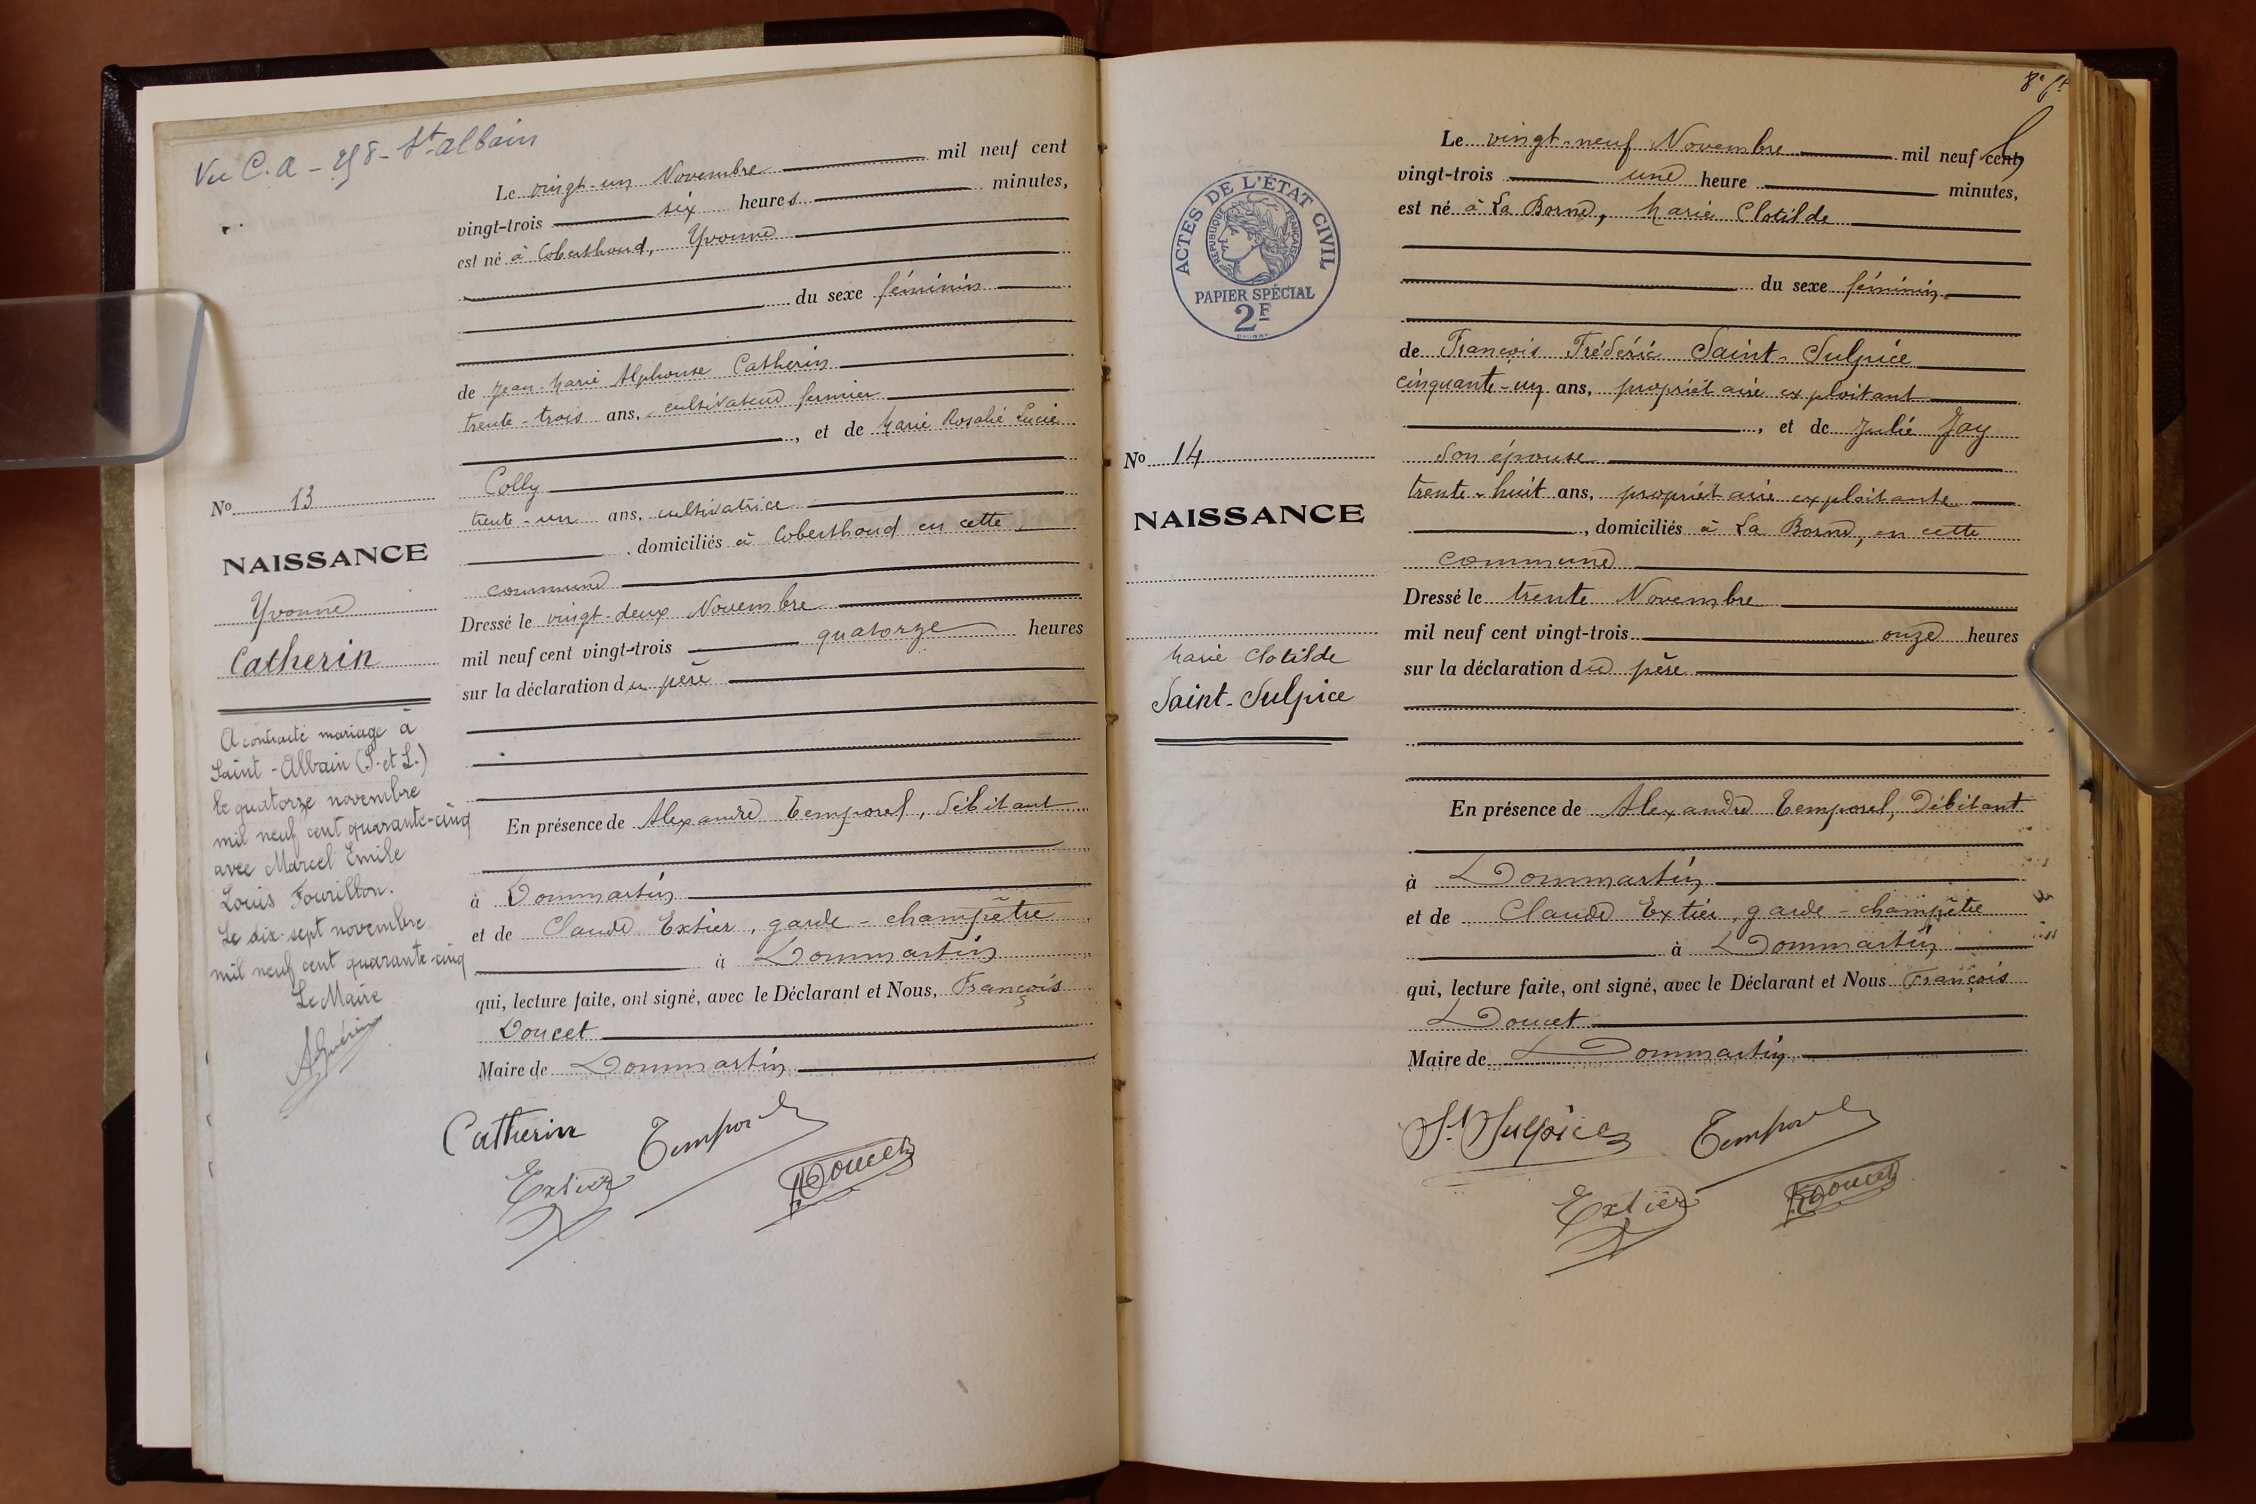 St albain
Le vingt-un Novembre mil neuf cent
vingt-trois six heures minutes,
est né à Coberthoud, Yvonne
du sexe féminin
de Jean-Marie Alphonse Catherin
trente-trois ans, cultivateur fermier
, et de Marie Rosalie Lucie
Colly
trente-un ans, cultivatrice
, domiciliés à Coberthoud en cette
commune
Dressé le vingt-deux Novembre
mil neuf cent vingt-trois quatorze heures
sur la déclaration du père
En présence de Alexandre Temporel, débitant
à Dommartin
et de Claude Extier, garde-champêtre
à Dommartin
qui, lecture faite, ont signé, avec le Déclarant et Nous, François
Doucet
Maire de Dommartin
Catherin Temporel
Extier Doucet
No 13
NAISSANCE
Yvonne
Catherin
A contracté mariage à
Saint-Albain (S. et L.)
le quatorze novembre
mil neuf cent quarante-cinq
avec Marcel Emile
Louis Fourillon.
Le dix-sept novembre
mil neuf cent quarante-cinq
Le Maire
ACTES DE L'ÉTAT CIVIL
RÉPUBLIQUE FRANÇAISE
PAPIER SPÉCIAL
2F
No 14
NAISSANCE
Marie Clotilde
Saint-Sulpice
Le vingt-neuf Novembre mil neuf cent
vingt-trois une heure minutes,
est né à La Borne, Marie Clotilde
du sexe féminin
de François Frédéric Saint-Sulpice
cinquante-un ans, propriétaire exploitant
, et de Julie Jay
son épouse
trente-huit ans, propriétaire exploitante
, domiciliés à La Borne, en cette
commune
Dressé le trente Novembre
mil neuf cent vingt-trois onze heures
sur la déclaration du père
En présence de Alexandre Temporel, Débitant
à Dommartin
et de Claude Extier, garde-champêtre
à Dommartin
qui, lecture faite, ont signé, avec le Déclarant et Nous François
Doucet
Maire de Dommartin
St Sulpice Temporel
Extier Doucet